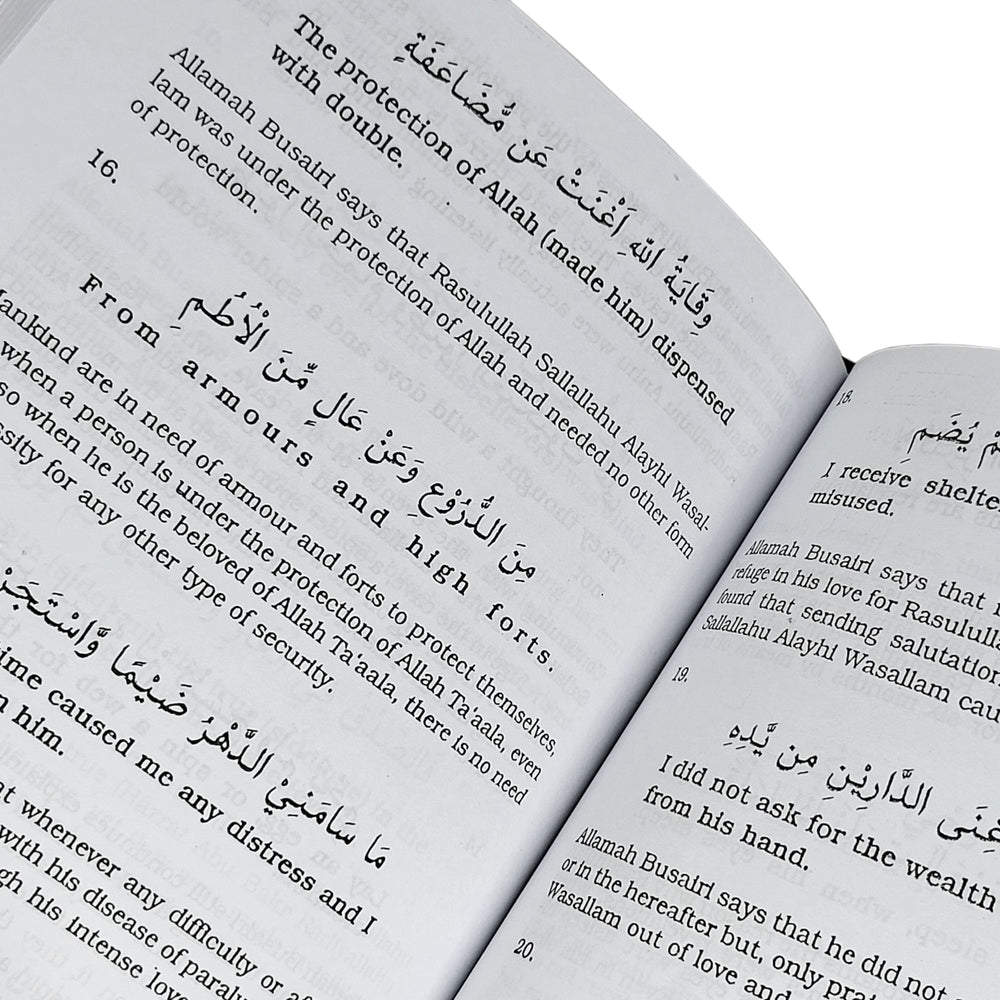 وِقَايَةُ اللّٰهِ اَغْنَتْ عَن مُّضَاعَفَةٍ
The protection of Allah (made him) dispensed
with double.
Allamah Busairi says that Rasulullah Sallallahu Alayhi Wasal-
lam was under the protection of Allah and needed no other form
of protection.
16.
مِنَ الدُّرُوْعِ وَعَنْ عَالٍ مِّنَ الْاُطُمِ
From armours and high forts.
Mankind are in need of armour and forts to protect themselves,
when a person is under the protection of Allah Ta'aala, even
so when he is the beloved of Allah Ta'aala, there is no need
for any other type of security.
مَا سَامَنِيْ الدَّهْرُ ضَيْمًا
caused me any distress and I
him.
whenever any difficulty or
with his disease of
his intense
18.
يُضَمِ
I receive
misused.
Allamah Busairi says that
refuge in his love for
found that sending
Sallallahu Alayhi Wasallam
19.
الدَّارَيْنِ مِن يَّدِهِ
I did not ask for the wealth
from his hand.
Allamah Busairi says that he did not
or in the hereafter but, only
Wasallam out of love and
20.